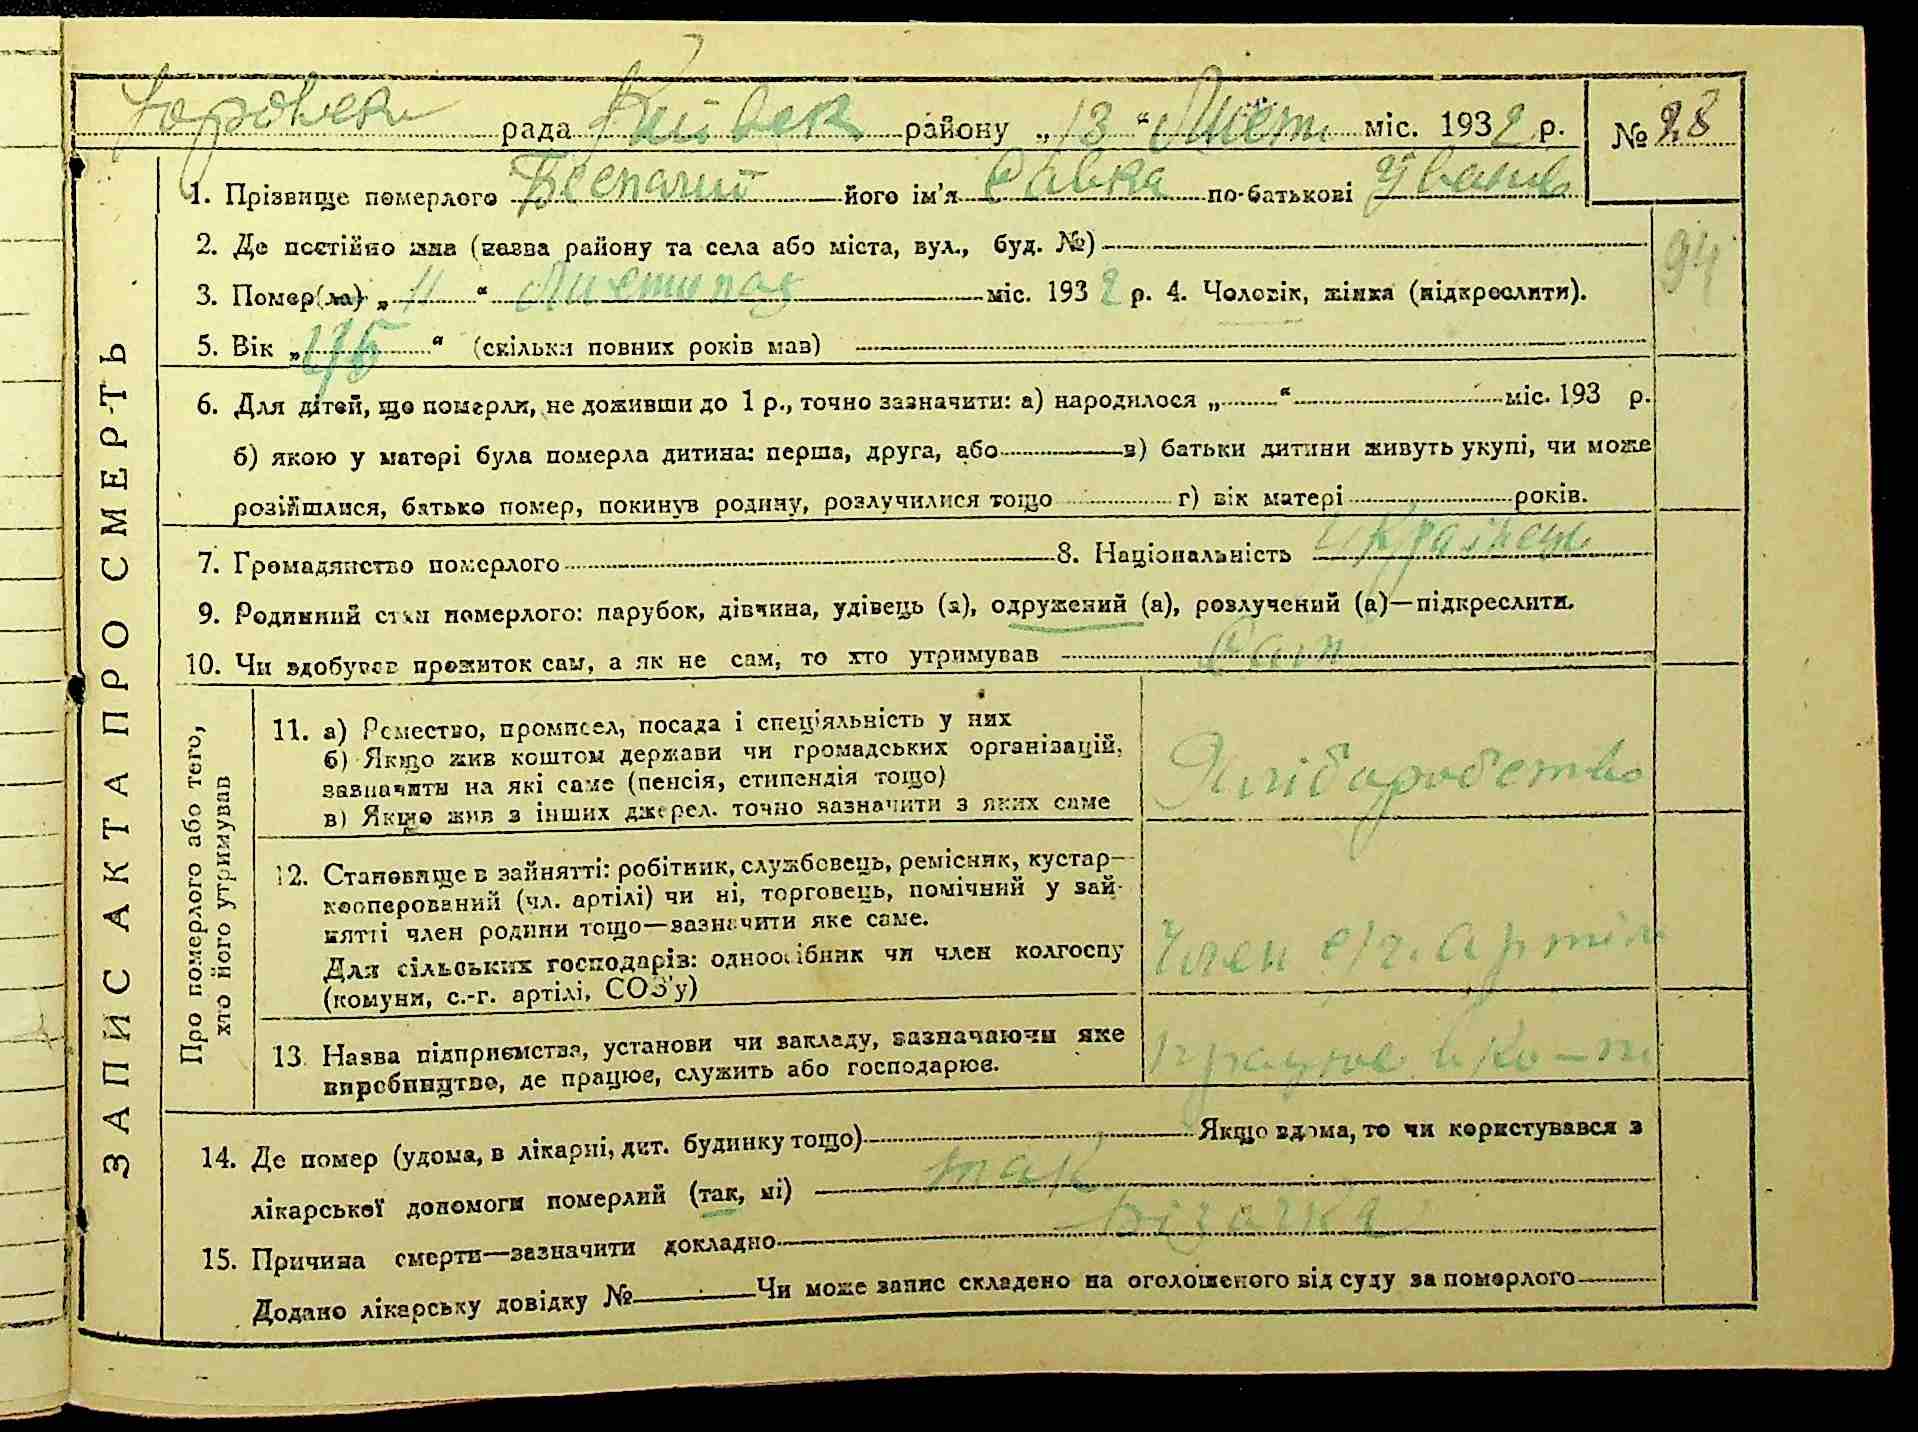 рада Київськ району „13“ Лист міс. 1932 р. № 28
1. Прізвище померлого Беспалий його ім'я Савка по-батькові Іванов
2. Де постійно жив (назва району та села або міста, вул., буд. №)
94
3. Помер(ла) „11“ Листопад міс. 1932 р. 4. Чоловік, жінка (підкреслити).
5. Вік „ “ (скільки повних років мав)
6. Для дітей, що померли, не доживши до 1 р., точно зазначити: а) народилося „ “ міс. 193 р.
б) якою у матері була померла дитина: перша, друга, або в) батьки дитини живуть укупі, чи може
розійшлися, батько помер, покинув родину, розлучилися тощо г) вік матері років.
7. Громадянство померлого 8. Національність Українець
9. Родинний стан померлого: парубок, дівчина, удівець (а), одружений (а), розлучений (а)—підкреслити.
10. Чи здобував прожиток сам, а як не сам, то хто утримував Сам
ЗАПИС АКТА ПРО СМЕРТЬ
Про померлого або того,
хто його утримував
11. а) Ремество, промисел, посада і спеціяльність у них
б) Якщо жив коштом держави чи громадських організацій,
зазначити на які саме (пенсія, стипендія тощо)
в) Якщо жив з інших джерел. точно зазначити з яких саме
Хліборобство
12. Становище в зайнятті: робітник, службовець, ремісник, кустар—
кооперований (чл. артілі) чи ні, торговець, помічний у зай-
нятті член родини тощо—зазначити яке саме.
Для сільських господарів: одноосібник чи член колгоспу
(комуни, с.-г. артілі, СОЗ'у)
Член с/г. артіли
13. Назва підприємства, установи чи закладу, зазначаючи яке
виробництво, де працює, служить або господарює.
працює в
14. Де помер (удома, в лікарні, дит. будинку тощо) Якщо вдома, то чи користувався з
лікарської допомоги померлий (так, ні) так
15. Причина смерти—зазначити докладно
Додано лікарську довідку № Чи може запис складено на оголошеного від суду за померлого